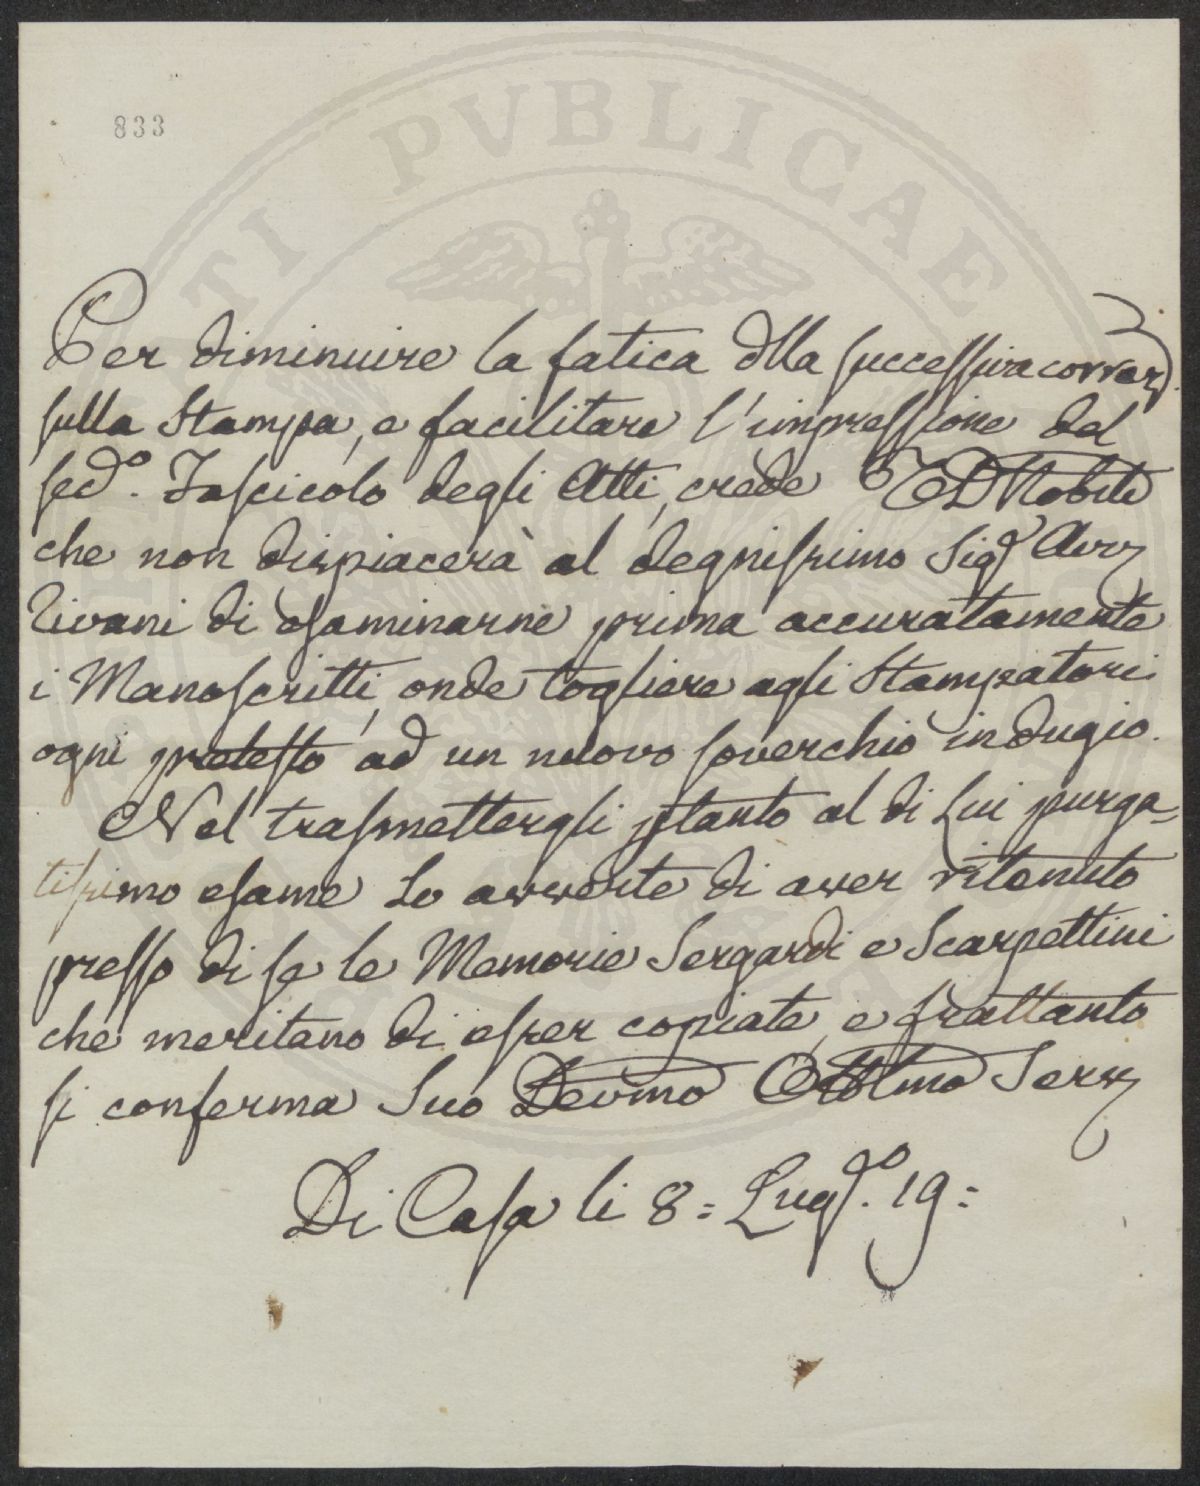 PVBLICAE
833
Per diminuire la fatica dlla successiva correz.
sulla Stampa, e facilitare l'impressione del
secd.o Fascicolo degli Atti, crede De Nobili
che non dispiacerà al degnissimo Sigr Avv
Tivani di esaminarne prima accuratamente
i Manoscritti, onde togliere agli Stampatori
ogni pretesto ad un nuovo soverchio indugio.
Nel trasmettergli ptanto al di Lui purga=
tissimo esame Lo avverte di aver ritenuto
presso di se le Memorie Sergardi e Scarpettini
che meritano di esser copiate, e frattanto
si conferma Suo Devmo Obblmo Serv
Di Casa li 8 = Lugo. 19 =